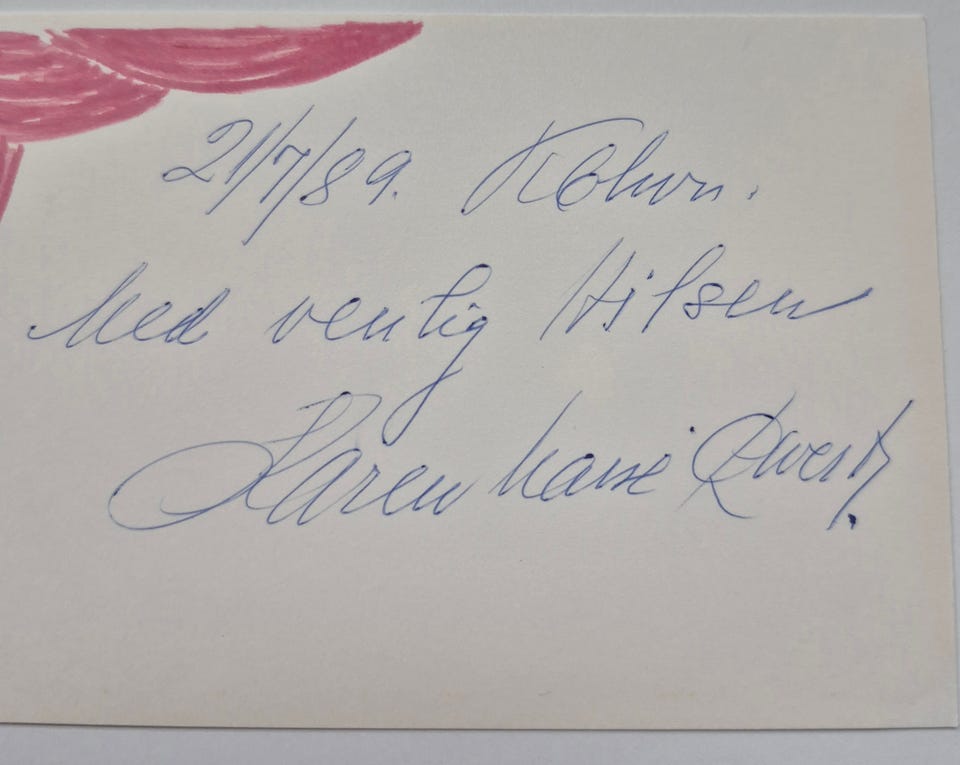 21/7/89. Kbhvn.
Med venlig Hilsen
Karen Marie